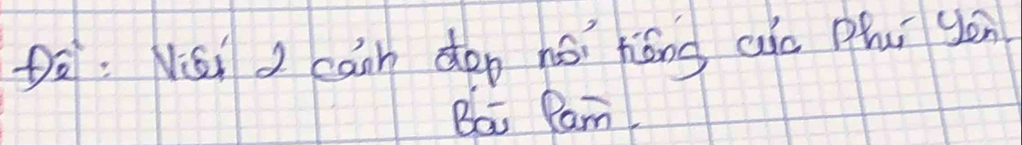 Đề: Viết 2 cảnh đẹp nổi tiếng của Phú Yên.
Bài làm.